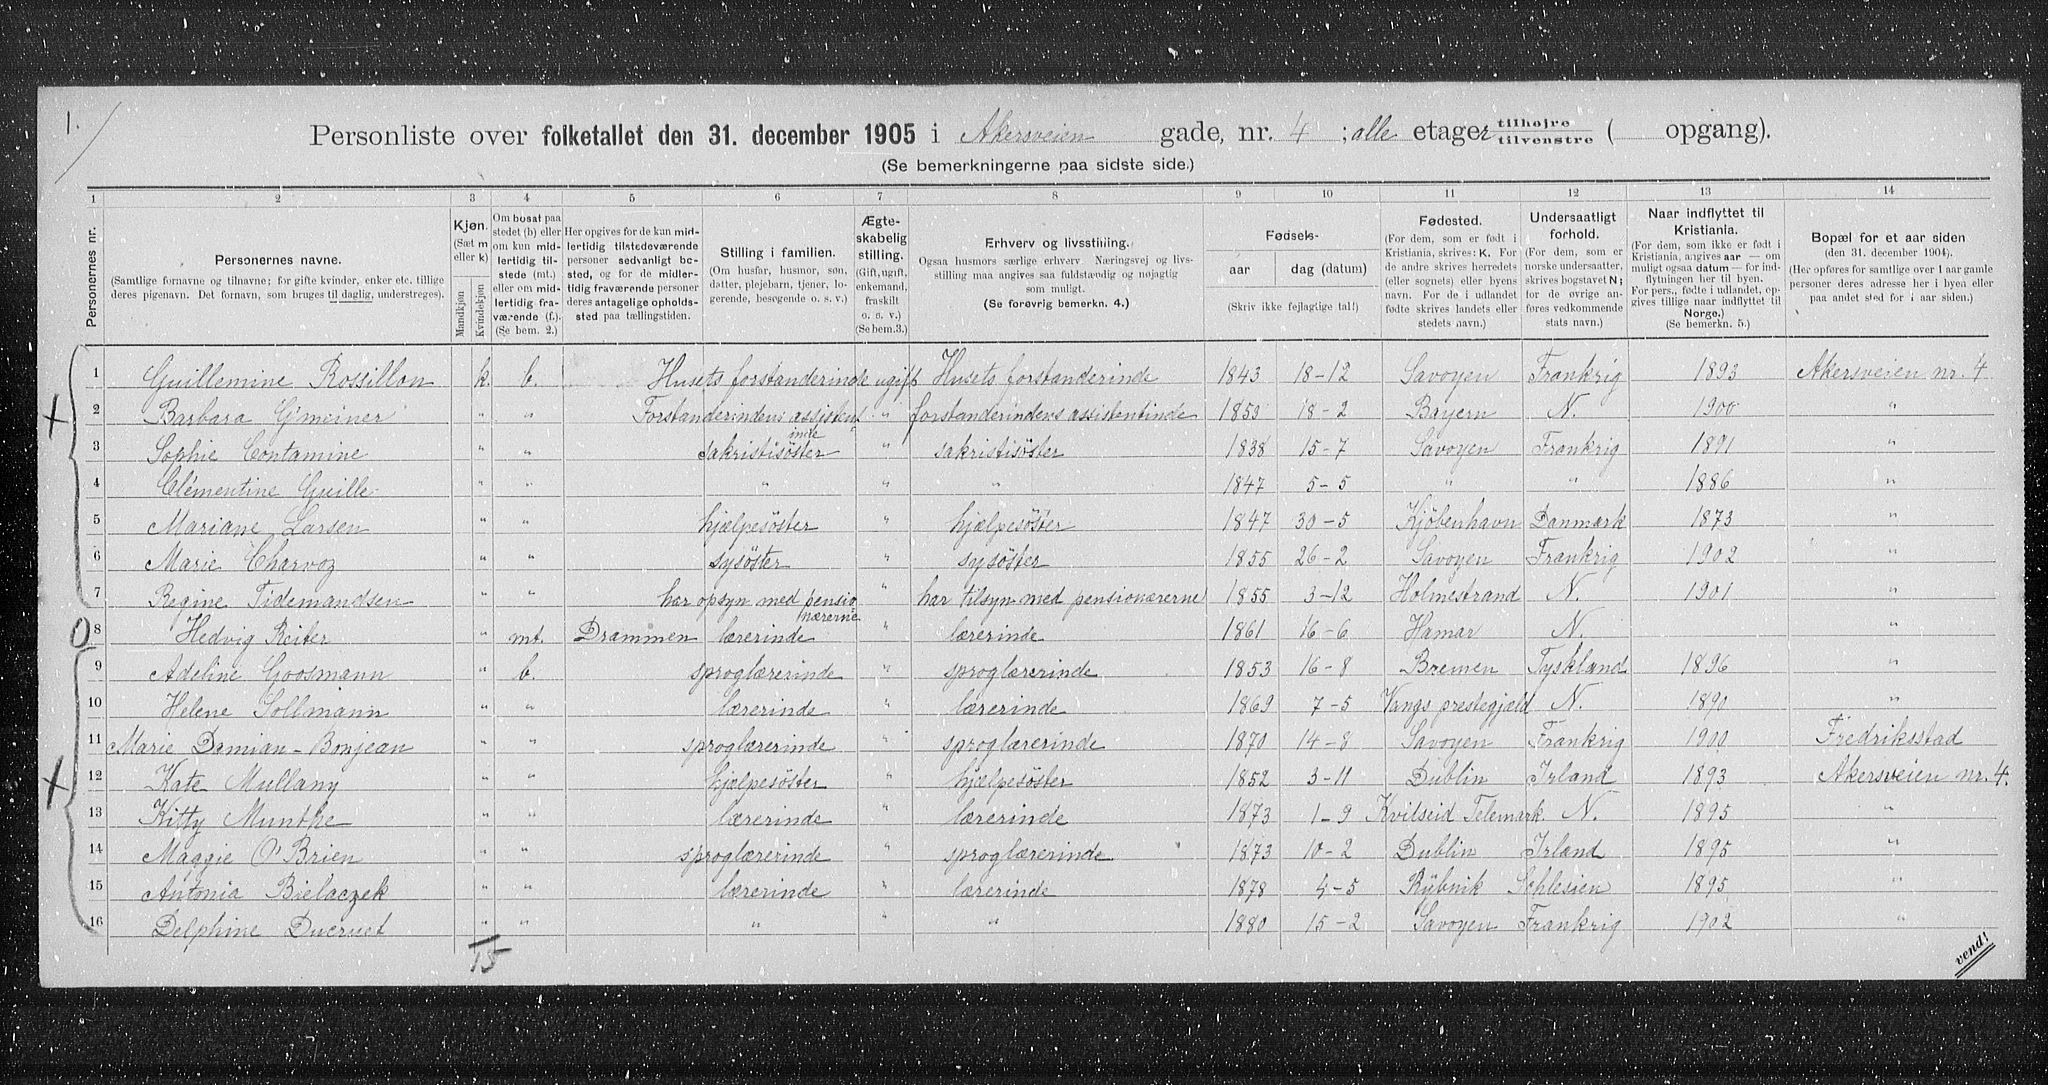 1.
Personliste over folketallet den 31. december 1905 i Akersveien gade, nr. 4 ; alle etager tilhøjre tilvenstre ( opgang).
(Se bemerkningerne paa sidste side.)
1 2 3 4 5 6 7 8 9 10 11 12 13 14
Personernes nr.
Personernes navne.
(Samtlige fornavne og tilnavne; for gifte kvinder, enker etc. tillige
deres pigenavn. Det fornavn, som bruges til daglig, understreges).
Kjøn.
(Sæt m
eller k)
Mandkjøn
Kvindekjøn
Om bosat paa
stedet (b) eller
om kun mid-
lertidig til-
stede (mt.)
eller om mid-
lertidig fra-
værende (f.).
(Se bem. 2.)
Her opgives for de kun mid-
lertidig tilstedeværende
personer sedvanligt bo-
sted, og for de midler-
tidig fraværende personer
deres antagelige opholds-
sted paa tællingstiden.
Stilling i familien.
(Om husfar, husmor, søn,
datter, plejebarn, tjener, lo-
gerende, besøgende o. s. v.)
Ægte-
skabelig
stilling.
(Gift, ugift,
enkemand,
fraskilt
o. s. v.)
(Se bem.3.)
Erhverv og livsstilling.
Ogsaa husmors særlige erhverv. Næringsvej og livs-
stilling maa angives saa fuldstændig og nøjagtig
som muligt.
(Se forøvrig bemerkn. 4.)
Fødsels-
aar dag (datum)
(Skriv ikke fejlagtige tal!)
Fødested.
(For dem, som er født i
Kristiania, skrives: K. For
de andre skrives herredets
(eller sognets) eller byens
navn. For de i udlandet
fødte skrives landets eller
stedets navn.)
Undersaatligt
forhold.
(For dem, som er
norske undersaatter,
skrives bogstavet N;
for de øvrige an-
føres vedkommende
stats navn.)
Naar indflyttet til
Kristiania.
(For dem, som ikke er født i
Kristiania, angives aar — om
muligt ogsaa datum — for ind-
flytningen her til byen.
For pers., fødte i udlandet, op-
gives tillige naar indflyttet til
Norge.)
(Se bemerkn. 5.)
Bopæl for et aar siden
(den 31. december 1904).
(Her opføres for samtlige over 1 aar gamle
personer deres adresse her i byen eller
paa andet sted for 1 aar siden.)
1 Guillemine Rossillon k. b. Husets forstanderinde ugift Husets forstanderinde 1843 18-12 Savoyen Frankrig 1893 Akersveien nr. 4
2 Barbara Gmeiner " " Forstanderindens assistent inde " forstanderindens assistentinde 1853 18-2 Bayern N. 1900 "
3 Sophie Contamine " " sakristisøster " sakristisøster 1838 15-7 Savoyen Frankrig 1891 "
4 Clémentine Guille " " " " " 1847 5-5 " " 1886 "
5 Mariane Larsen " " hjælpesøster " hjælpesøster 1847 30-5 Kjöbenhavn Danmark 1873 "
6 Marie Charvoz " " sysøster " sysøster 1855 26-2 Savoyen Frankrig 1902 "
7 Regine Tidemandsen " " har opsyn med pensio nærerne " har tilsyn med pensionærerne 1855 3-12 Holmestrand N. 1901 "
8 Hedvig Reiter " mt. Drammen lærerinde " lærerinde 1861 16-6 Hamar N. "
9 Adeline Goosmann " b. sproglærerinde " sproglærerinde 1853 16-8 Bremen Tyskland 1896 "
10 Helene Sollmann " " lærerinde " lærerinde 1869 7-5 Vangs prestegjeld N. 1890 "
11 Marie Damian-Bonjean " " sproglærerinde " sproglærerinde 1870 14-8 Savoyen Frankrig 1900 Fredriksstad
12 Kate Mullany " " hjælpesøster " hjælpesøster 1852 3-11 Dublin Irland 1893 Akersveien nr. 4.
13 Kitty Munthe " " lærerinde " lærerinde 1873 1-9 Kvitseid Telemark N. 1895 "
14 Maggie O'Brien " " sproglærerinde " sproglærerinde 1873 10-2 Dublin Irland 1895 "
15 Antonia Bielaczek " " lærerinde " lærerinde 1878 4-5 Rybnik Schlesien 1895 "
16 Delphine Ducruet " " " " " 1880 15-2 Savoyen Frankrig 1902 "
15
vend!